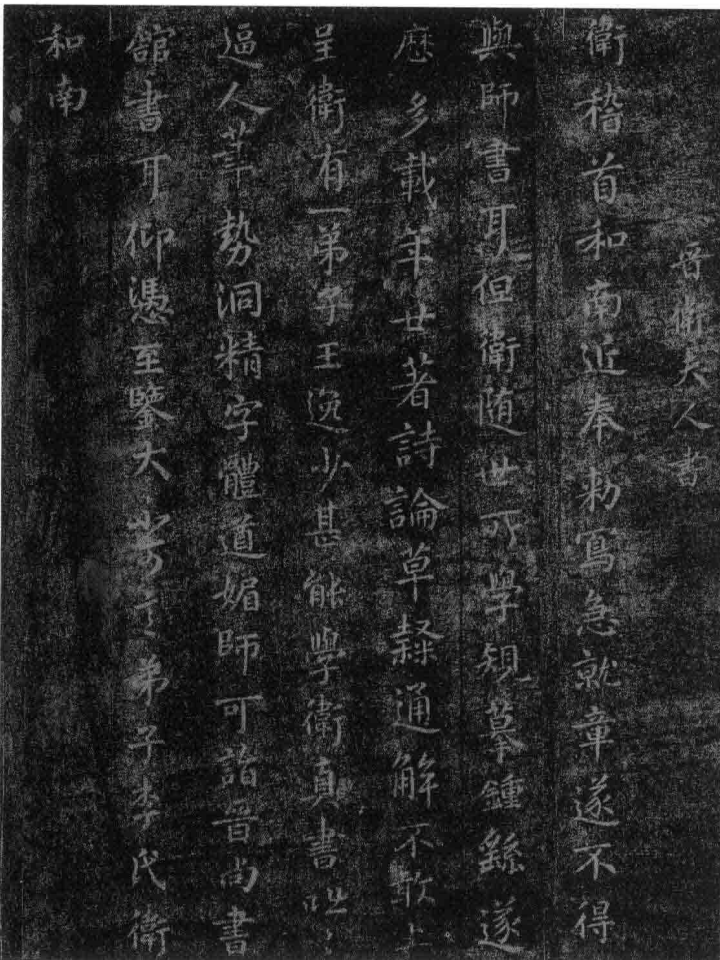 晉衛夫人書
衛稽首和南近奉勅寫急就章遂不得
與師書耳但衛隨世所學規摹鍾繇遂
歷多載年廿著詩論草隸通解不敢上
呈衛有一弟子王逸少甚能學衛真書咄〻
逼人筆勢洞精字體遒媚師可詣晉尚書
館書耳仰憑至鑒大不可言弟子李氏衛
和南